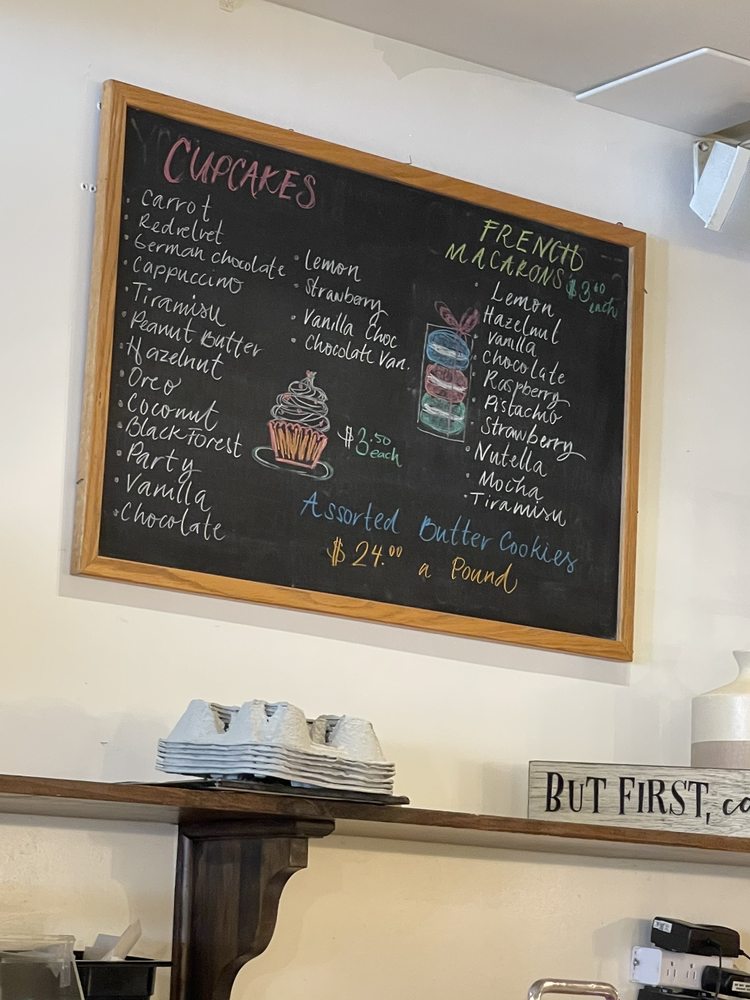 CUPCAKES
• Carrot
• Redvelvet
• German chocolate
• Cappuccino
• Tiramisu
• Peanut Butter
• Hazelnut
• Oreo
• Coconut
• Black Forest
• Party
• Vanilla
• Chocolate
• Lemon
• Strawberry
• Vanilla Choc
• Chocolate Van.
$3.50
each
FRENCH
MACARONS $3.60
each
• Lemon
• Hazelnut
• Vanilla
• Chocolate
• Raspberry
• Pistachio
• Strawberry
• Nutella
• Mocha
• Tiramisu
Assorted Butter Cookies
$24.00 a Pound
BUT FIRST,